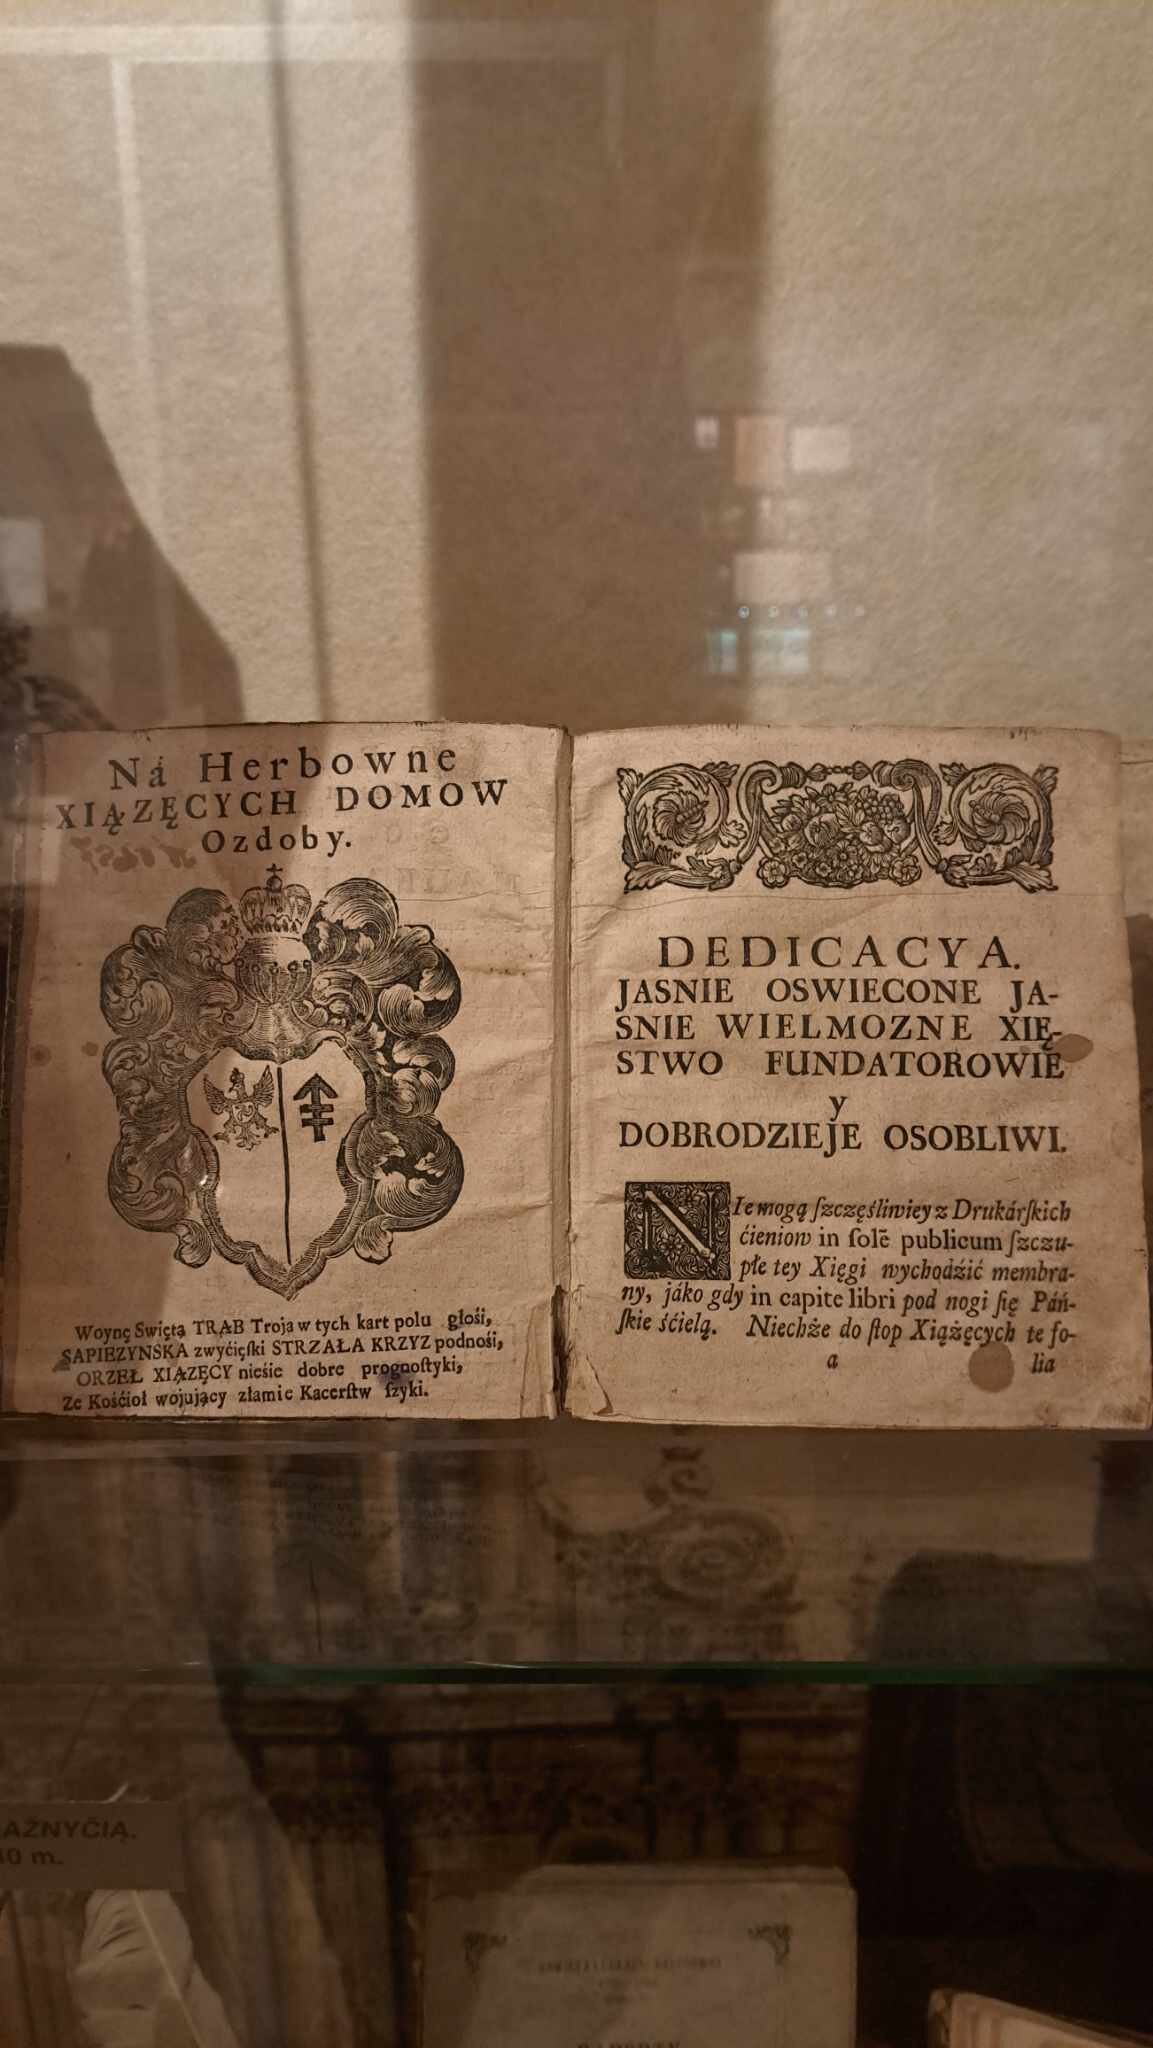 Ná Herbowne
XIĄZĘCYCH DOMOW
Ozdoby.
Woynę Swiętą TRĄB Troja w tych kart polu głośi,
SAPIEZYNSKA zwyćięſki STRZAŁA KRZYZ podnośi,
ORZEŁ XIĄZĘCY nieśie dobre prognoſtyki,
Ze Kośćioł wojujący złamie Kacerſtw ſzyki.
DEDICACYA.
JASNIE OSWIECONE JA-
SNIE WIELMOZNE XIĘ-
STWO FUNDATOROWIE
y
DOBRODZIEJE OSOBLIWI.
NIe mogą ſzczęśliwiey z Drukárſkich
ćieniow in ſolē publicum ſzczu-
płe tey Xięgi wychodźić membra-
ny, jáko gdy in capite libri pod nogi ſię Páń-
ſkie śćielą. Niechże do ſtop Xiążęcych te fo-
a lia
AŽNYČIĄ.
40 m.